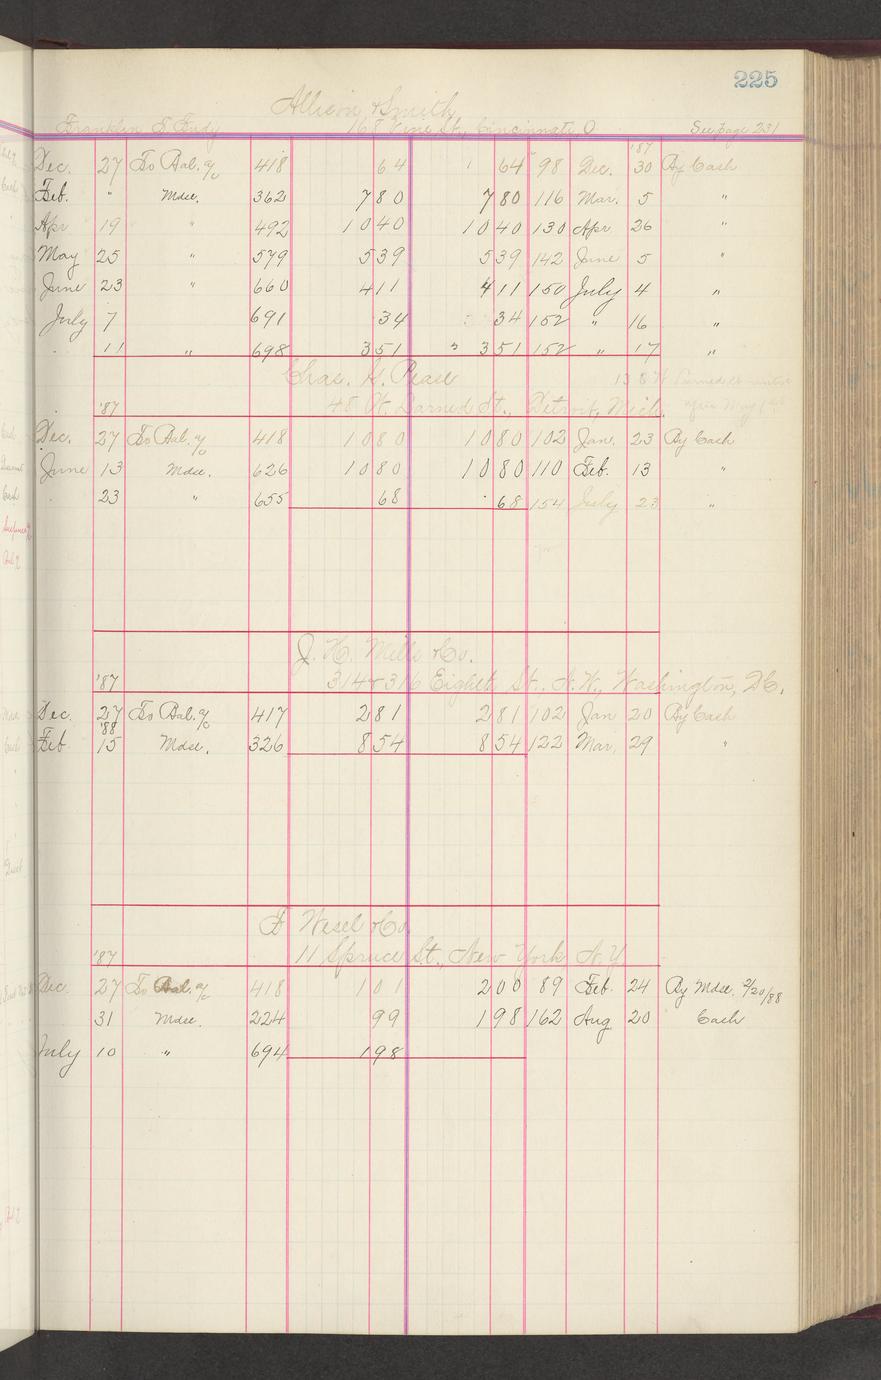 225
Allison & Smith
168 Vine St., Cincinnati O See page 231
'87
Dec. 27 To Bal. a/c 418 64 64 98 Dec. 30 By Cash
Feb. " Mdse. 362 780 780 116 Mar. 5 "
Apr 19 " 492 1040 1040 130 Apr 26 "
May 25 " 579 539 539 142 June 5 "
June 23 " 660 411 411 150 July 4 "
July 7 691 34 34 152 " 16 "
" 11 " 698 351 351 152 " 17 "
Chas. H. Pease
'87 45 W. Larned St., Detroit, Mich. after May 1st
Dec. 27 To Bal. a/c 418 1080 1080 102 Jan. 23 By Cash
June 13 Mdse. 626 1080 1080 110 Feb. 13 "
23 " 655 68 68 154 July 23 "
J. H. Mills & Co.
'87 314 & 316 Eighth St., N.W., Washington, D.C.
Dec. 27 To Bal. a/c 417 281 281 102 Jan 20 By Cash
'88
Feb 15 Mdse. 326 854 854 122 Mar. 29 "
F Wesel & Co.
'87 11 Spruce St., New York N.Y
Dec. 27 To Bal. a/c 418 101 200 89 Feb. 24 By Mdse. 2/20/88
31 Mdse. 224 99 198 162 Aug 20 Cash
July 10 " 694 198